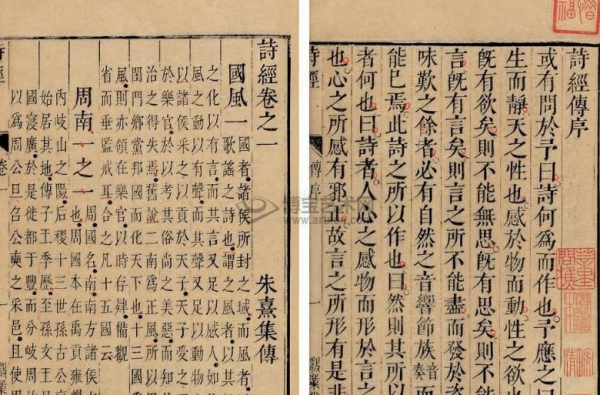 詩經傳序
或有問於予曰詩何爲而作也予應之曰
生而靜天之性也感於物而動性之欲也
既有欲矣則不能無思既有思矣則不能
言既有言矣則言之所不能盡而發於
味歎之餘者必有自然之音響節族奏
能已焉此詩之所以作也曰然則其所以
者何也曰詩者人心之感物而形於言之
也心之所感有邪正故言之所形有是非
詩經 傳序 一
詩經卷之一
朱熹集傳
國風一 國者諸侯所封之域而風者
歌謠之詩也謂之風者以其
之化以有言而其言又足以感人如
風之動以有聲而其聲又足以動物
以諸侯采之以貢於天子天子受之
於樂官於以考其俗尚之美惡而知
治之得失焉舊說二南爲正風所以
閨門鄉黨邦國而化天下也十三國
風則亦領在樂官以時存肄備觀
省而垂監戒耳合之凡十五國云
周南一之一 周國名南南方諸侯
也周國本在禹貢雍
內岐山之陽后稷十三世孫古公
始居其地傳子王季歷至孫文王
國寖廣於是徙都于豐而分岐周
以爲周公旦召公奭之采邑且使
詩經 卷一